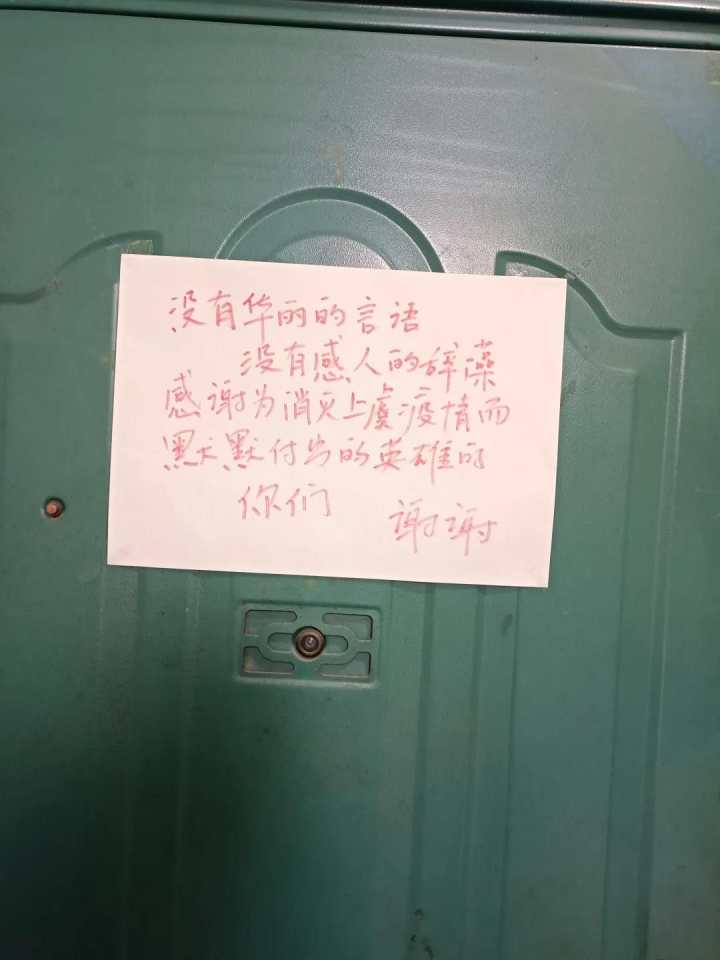 没有华丽的言语
没有感人的辞藻
感谢为消灭上虞疫情而
默默付出的英雄的
你们 谢谢